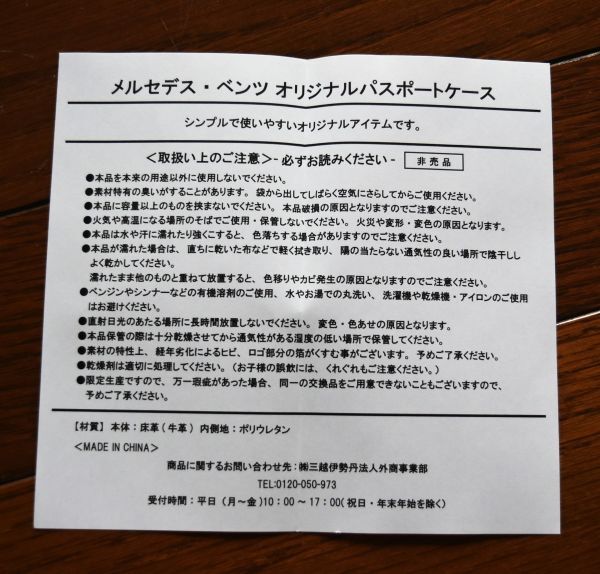 メルセデス・ベンツ オリジナルパスポートケース
シンプルで使いやすいオリジナルアイテムです。
＜取扱い上のご注意＞- 必ずお読みください - 非売品
●本品を本来の用途以外に使用しないでください。
●素材特有の臭いがすることがあります。 袋から出してしばらく空気にさらしてからご使用ください。
●本品に容量以上のものを挟まないでください。 本品破損の原因となりますのでご注意ください。
●火気や高温になる場所のそばでご使用・保管しないでください。 火災や変形・変色の原因となります。
●本品は水や汗に濡れたり強くこすると、 色落ちする場合がありますのでご注意ください。
●本品が濡れた場合は、 直ちに乾いた布などで軽く拭き取り、 陽の当たらない通気性の良い場所で陰干しし
よく乾かしてください。
濡れたまま他のものと重ねて放置すると、 色移りやカビ発生の原因となりますのでご注意ください。
●ベンジンやシンナーなどの有機溶剤のご使用、 水やお湯での丸洗い、 洗濯機や乾燥機・アイロンのご使用
はお避けください。
●直射日光のあたる場所に長時間放置しないでください。 変色・色あせの原因となります。
●本品保管の際は十分乾燥させてから通気性がある湿度の低い場所で保管してください。
●素材の特性上、 経年劣化によるヒビ、 ロゴ部分の箔がくすむ事がございます。 予めご了承ください。
●乾燥剤は適切に処理してください。（お子様の誤飲には、 くれぐれもご注意ください。）
●限定生産ですので、 万一瑕疵があった場合、 同一の交換品をご用意できないこともございますので、
予めご了承ください。
【材質】 本体：床革（牛革） 内側地：ポリウレタン
＜MADE IN CHINA＞
商品に関するお問い合わせ先：㈱三越伊勢丹法人外商事業部
TEL:0120-050-973
受付時間：平日 （月～金）10：00～17：00（祝日・年末年始を除く）